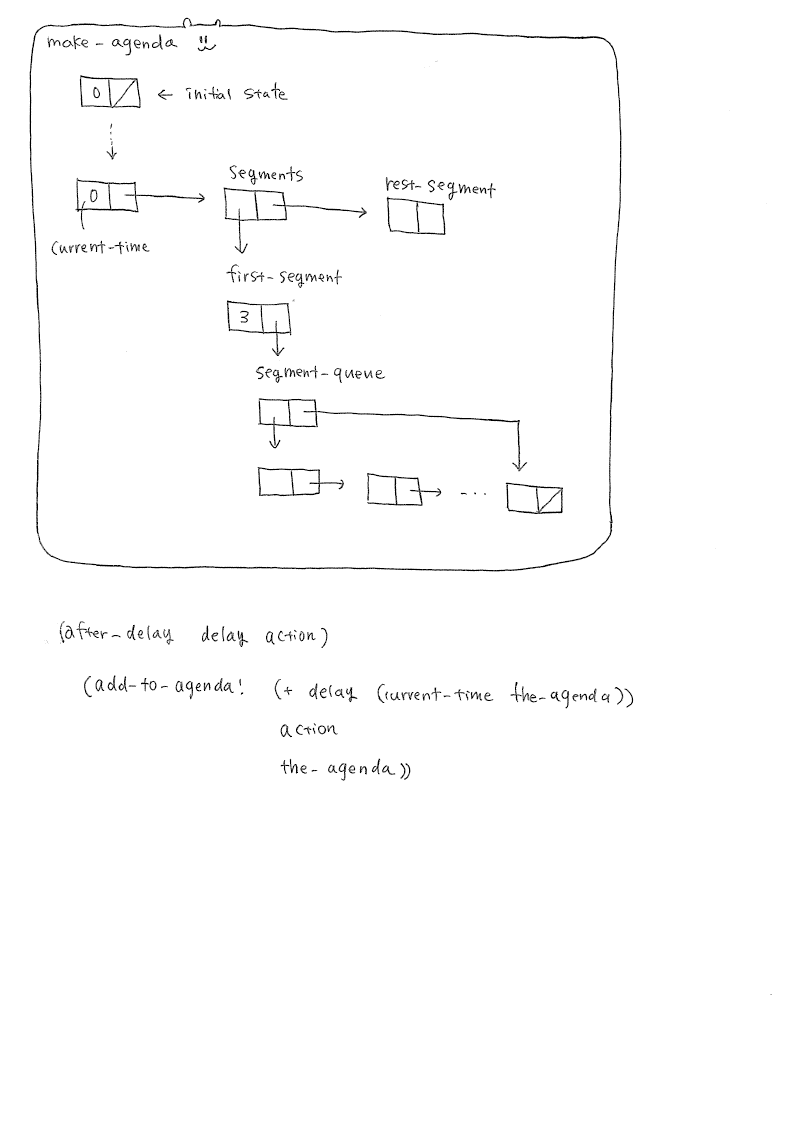 make-agenda
0 ← initial state
segments
rest-segment
0
current-time
first-segment
3
segment-queue
...
(after-delay delay action)
(add-to-agenda! (+ delay (current-time the-agenda))
action
the-agenda))